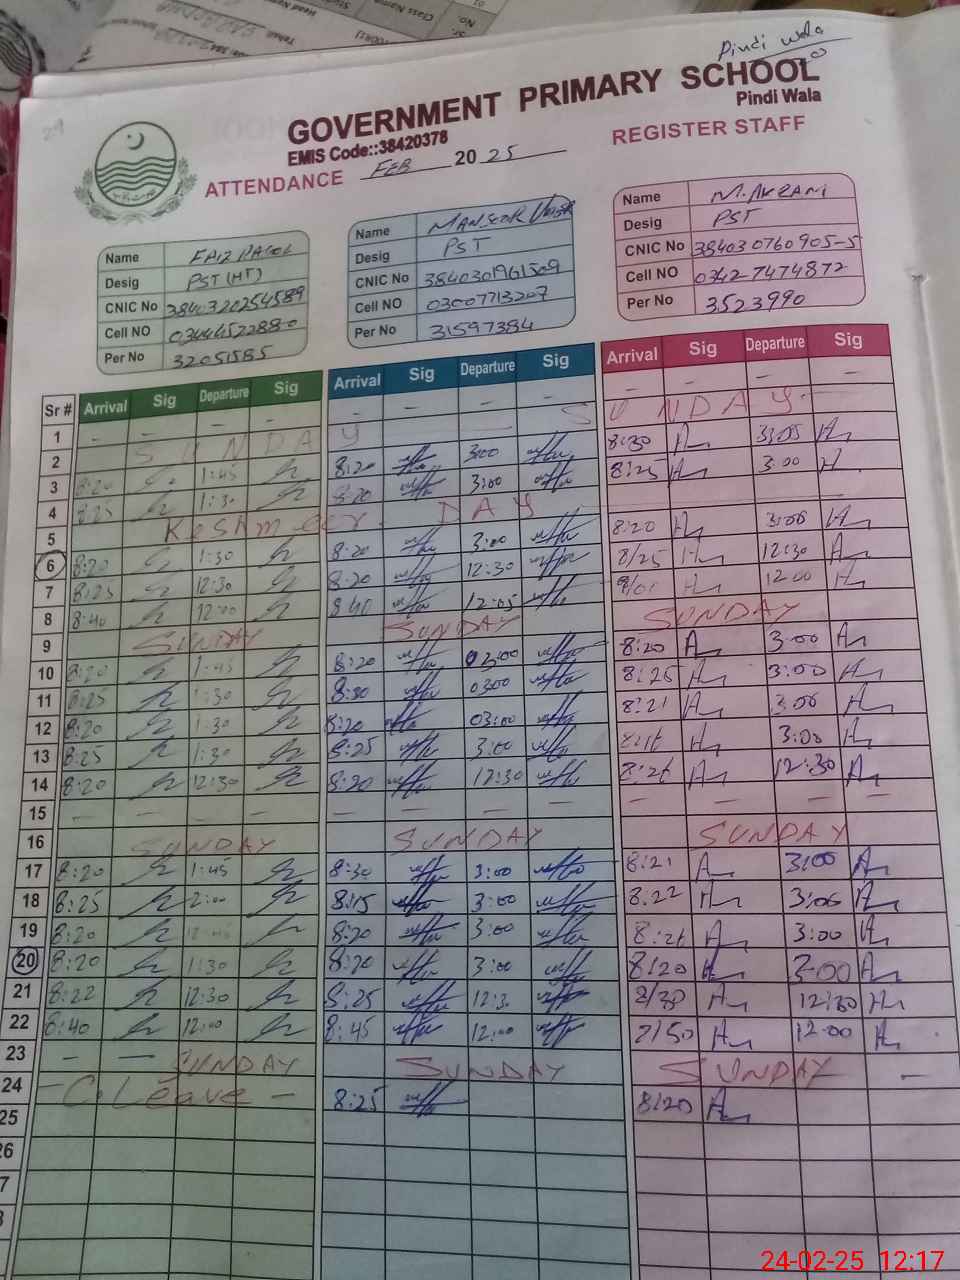 Pindi Wala
GOVERNMENT PRIMARY SCHOOL
Pindi Wala
EMIS Code::38420378
ATTENDANCE FEB 2025 REGISTER STAFF
Name
Desig PST (HT)
CNIC No 3840320254589
Cell NO
Per No 32051585
Name MANSOOR
Desig PST
CNIC No
Cell NO 03007713207
Per No 31597384
Name M. AKRAM
Desig PST
CNIC No 384030760905-5
Cell NO 0342-7474872
Per No 3523990
Sr # Arrival Sig Departure Sig Arrival Sig Departure Sig Arrival Sig Departure Sig
- - - - - - - - - - - -
1 SUNDAY SUNDAY
2 8:20 1:45 8:20 3:00 8:30 3:05
3 8:25 1:30 8:20 3:00 8:25 3:00
4 Keshmeer DAY
5 8:20 1:30 8:20 3:00 8:20 3:00
6 8:25 12:30 8:20 12:30 8/25 12:30
7 8:40 12:00 8:40 12:05 12:00
8 SUNDAY SUNDAY SUNDAY
9 8:20 1:45 8:20 03:00 8:20 3:00
10 8:25 1:30 8:30 0300 8:25 3:00
11 8:20 1:30 8:20 03:00 8:21 3:00
12 8:25 1:30 8:25 3:00 3:00
13 8:20 12:30 8:20 12:30 8:26 12:30
14 - - - - - - - - - - - -
15 SUNDAY SUNDAY SUNDAY
16 8:20 1:45 8:30 3:00 8:21 3:00
17 8:25 2:00 8:15 3:00 8.22 3:00
18 8:20 8:20 3:00 8:26 3:00
19 8:20 1:30 8:20 3:00 8:20 3-00
20 8:22 12:30 8:25 12:3 8/30 12:30
21 8:40 12:00 8:45 12:00 7/50 12:00
22 - - SUNDAY SUNDAY SUNDAY -
23 - C. Leave - 8:25 8:20
24
25
26
24-02-25 12:17